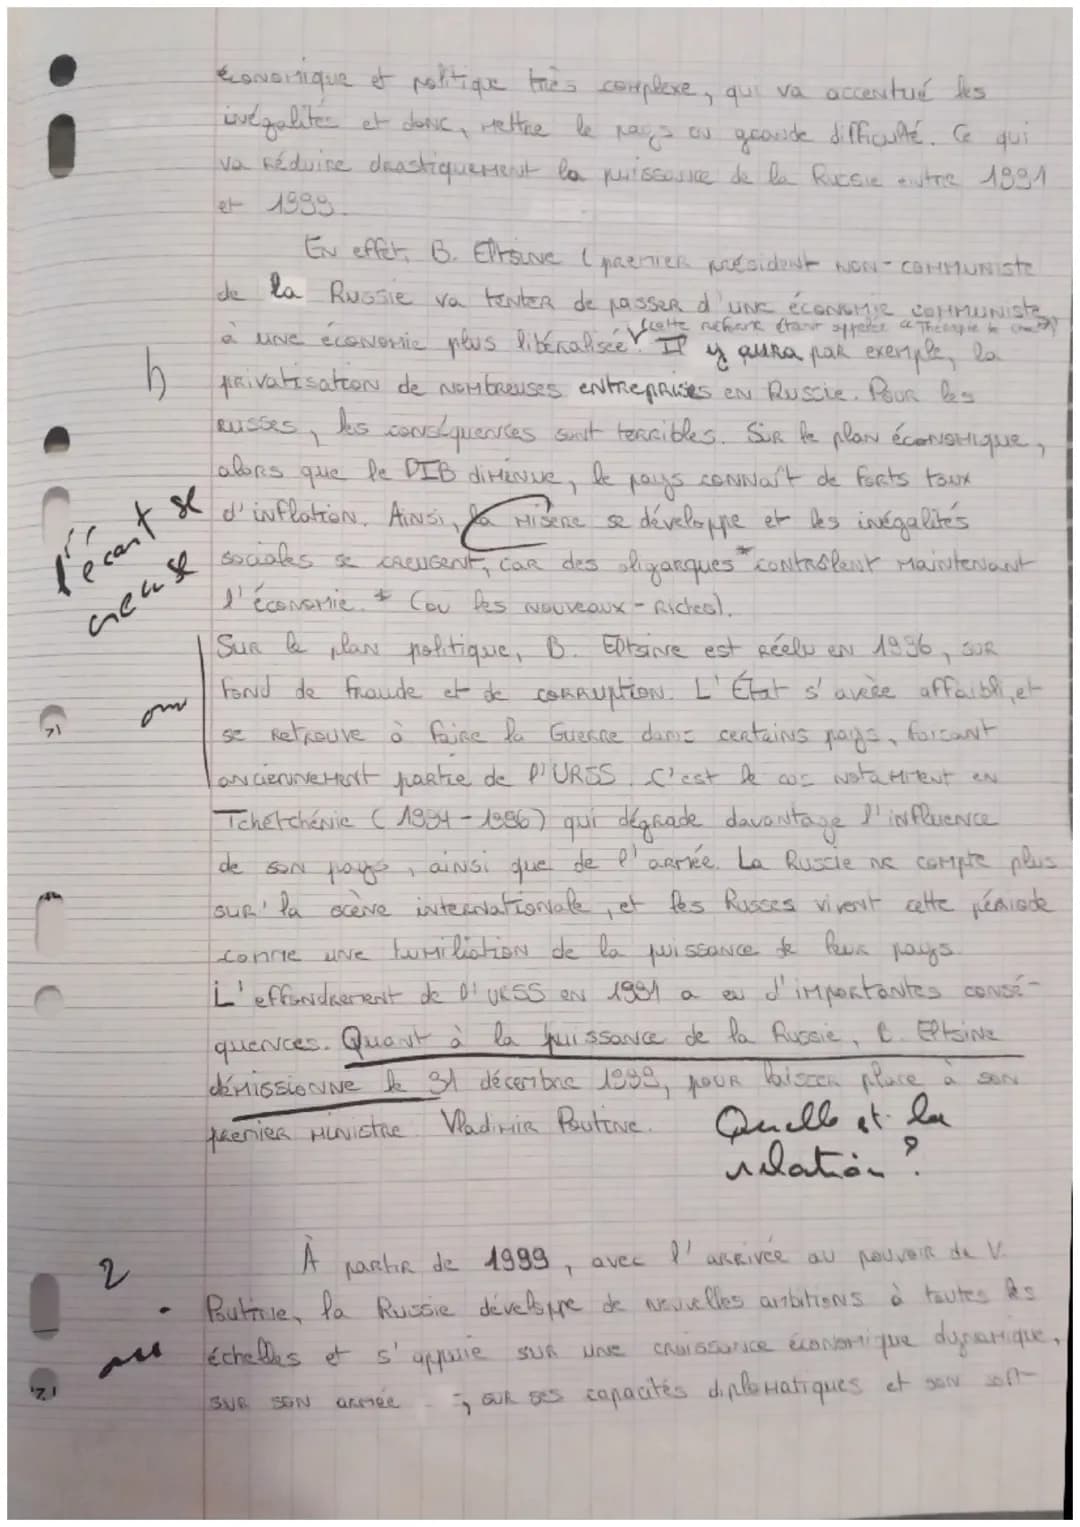 économique et politique très complexe, qui va accentué les
inégalités et donc, mettre le pays en grande difficulté. Ce qui
va réduire drastiquement la puissance de la Russie entre 1991
et 1999.
En effet, B. Eltsine (premier président non-communiste
de la Russie va tenter de passer d'une économie communiste
(cette réforme étant appelée "Thérapie de choc")
à une économie plus libéralisée. Il y aura par exemple, la
h
privatisation de nombreuses entreprises en Russie. Pour les
Russes, les conséquences sont terribles. Sur le plan économique,
alors que le PIB diminue, le pays connaît de forts taux
d'inflation. Ainsi, la misère se développe et les inégalités
l'écart se
creuse
sociales se creusent, car des oligarques* contrôlent maintenant
l'économie. * (ou les nouveaux-Riches).
Sur le plan politique, B. Eltsine est réélu en 1996, sur
fond de fraude et de corruption. L'État s'avère affaibli, et
oui
se retrouve à faire la Guerre dans certains pays, faisant
anciennement partie de l'URSS. C'est le cas notamment en
Tchétchénie (1994-1996) qui dégrade davantage l'influence
de son pays, ainsi que de l'armée. La Russie ne compte plus
sur la scène internationale, et les Russes vivent cette période
comme une humiliation de la puissance de leur pays.
L'effondrement de l'URSS en 1991 a eu d'importantes consé-
quences. Quant à la puissance de la Russie, B. Eltsine
démissionne le 31 décembre 1999, pour laisser place à son
premier ministre Vladimir Poutine.
Quelle est la
relation ?
2
À partir de 1999, avec l'arrivée au pouvoir de V.
Poutine, la Russie développe de nouvelles ambitions à toutes les
échelles et s'appuie sur une croissance économique dynamique,
sur son armée, sur ses capacités diplomatiques et son soft-